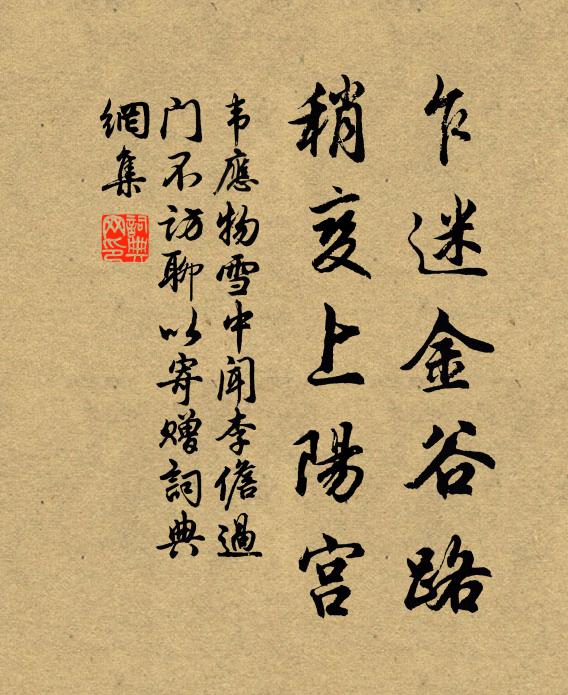 乍迷金谷路
稍变上陽宫
韦應物雪中闻李儋過
门不访聊以寄赠詞典
網集
詞典网印